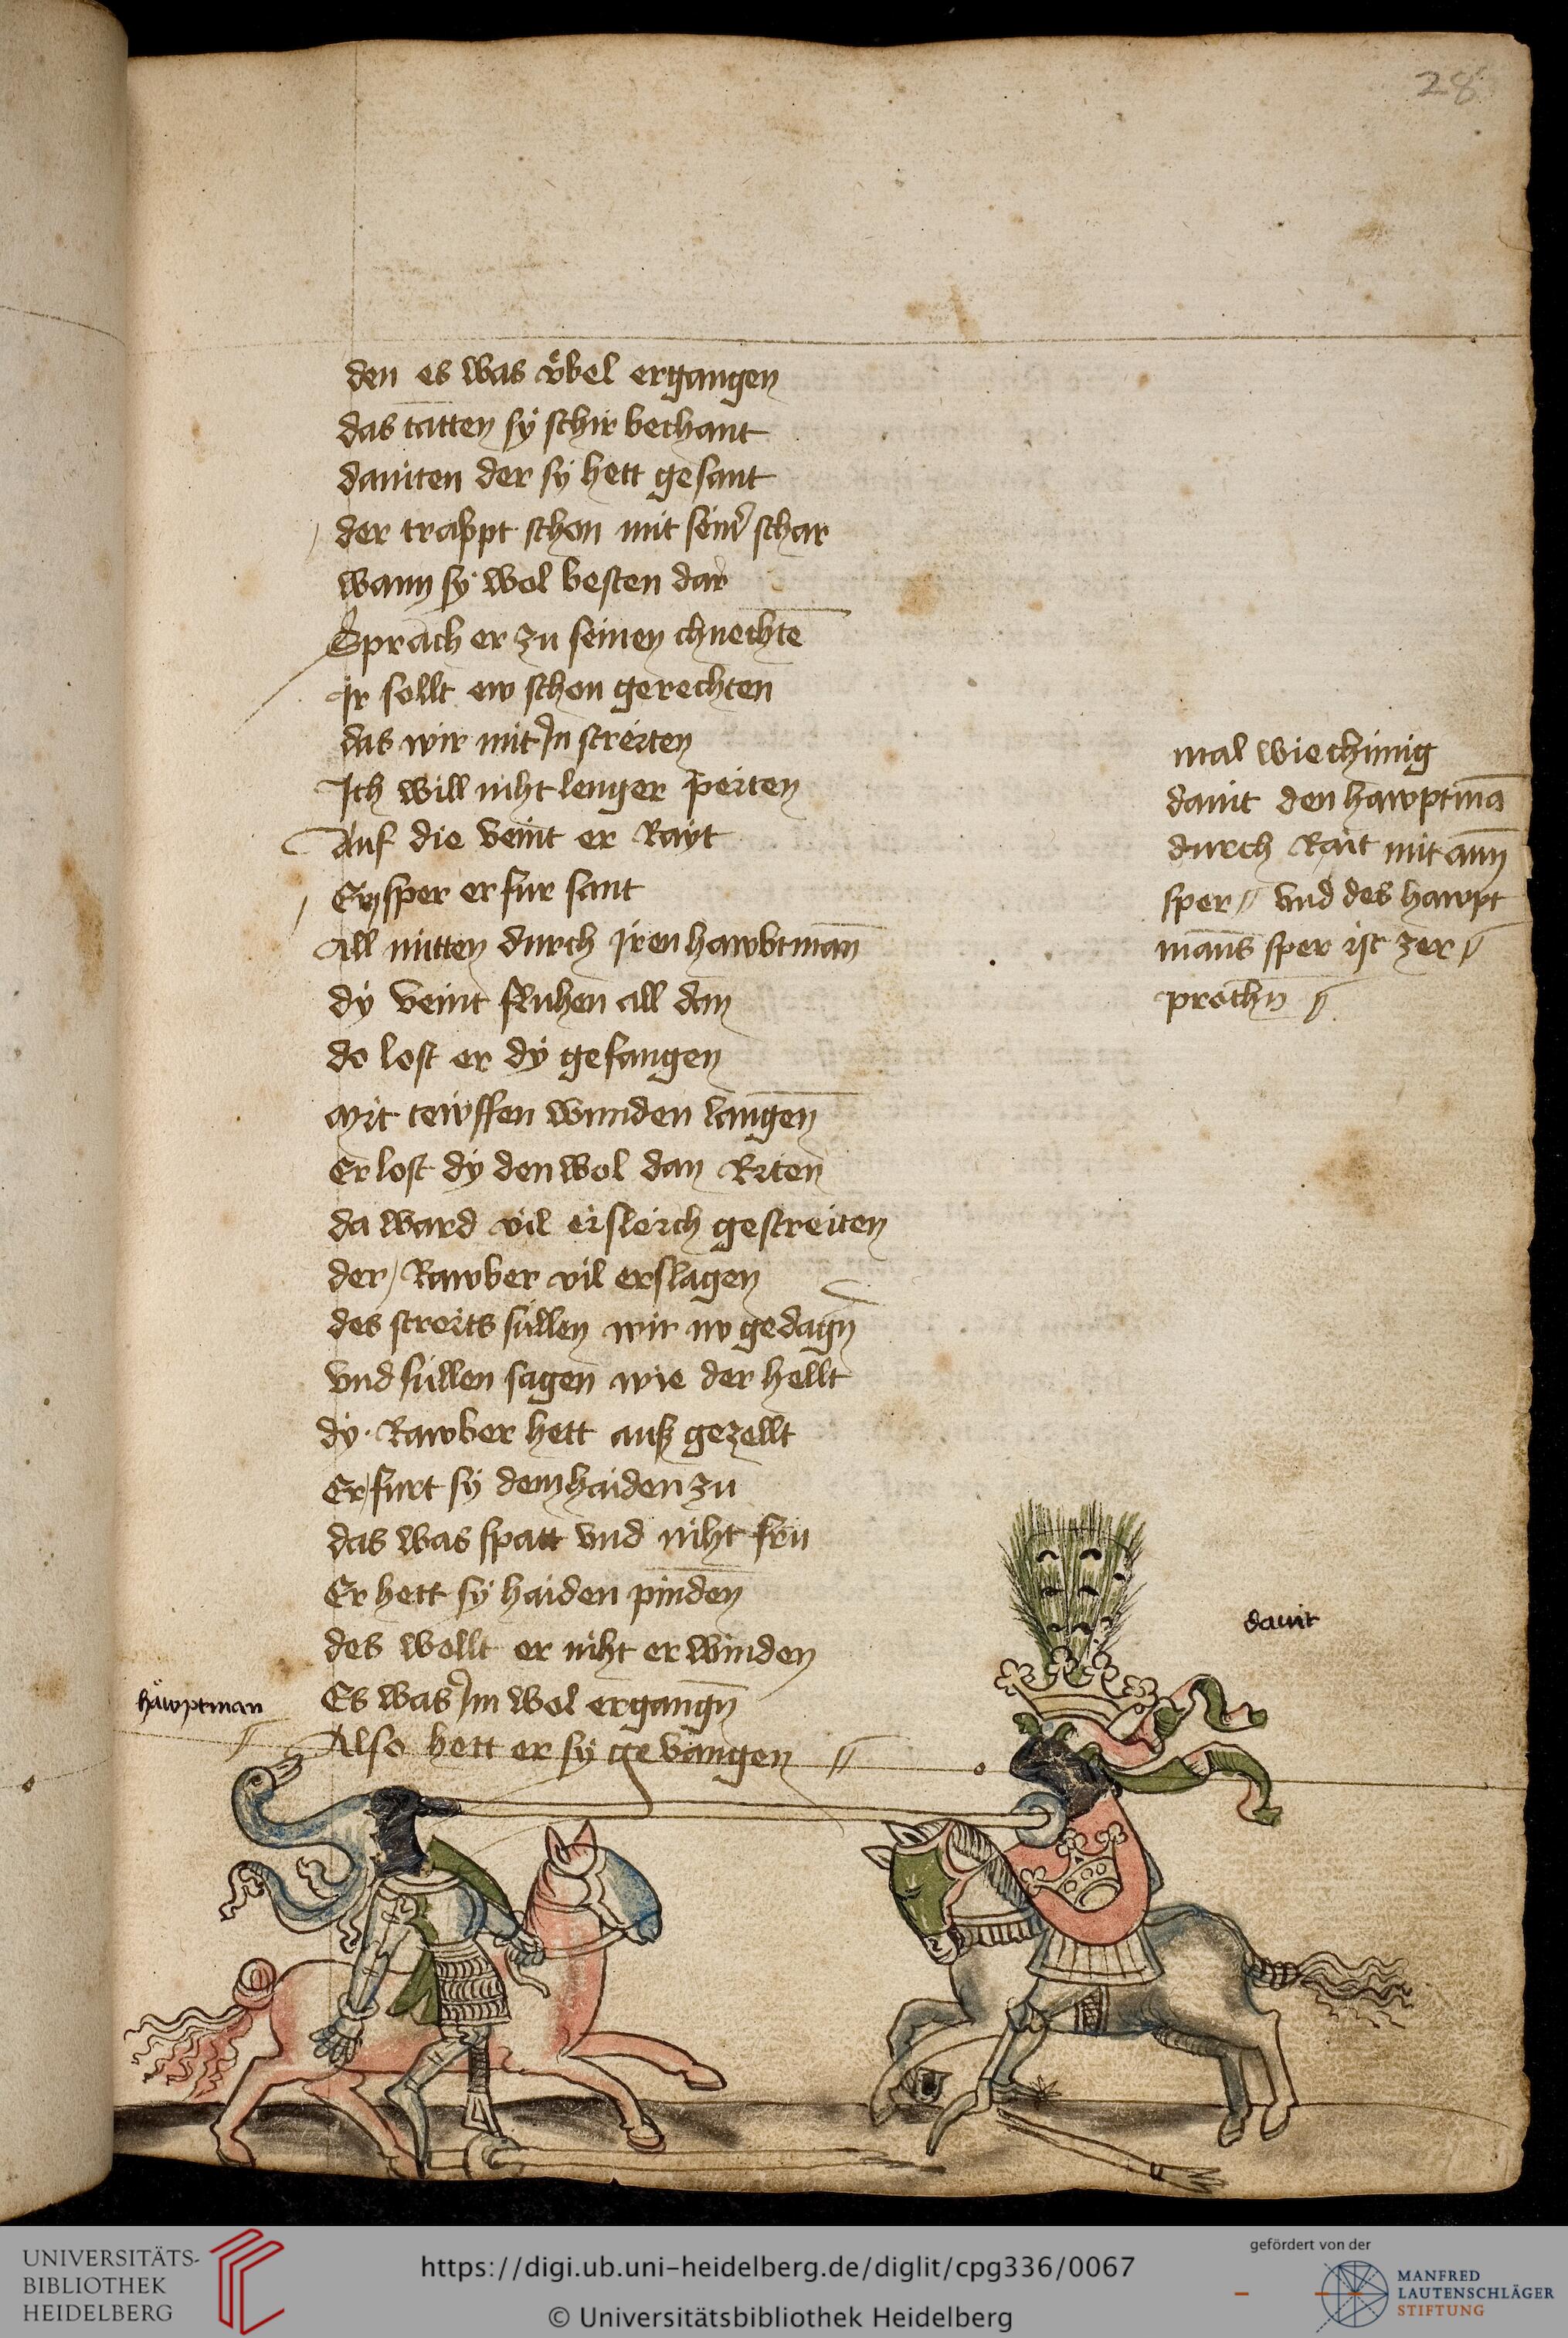 28
den es was vbel ergangen
das tatten sy schir bechant
dauiten der sy hett gesant
der trappt schon mit seinr schar
wann sy wol vesten dar
Sprach er zu seinen chnechten
Ir sollt ew schon gerechten
das wir mit In streiten
Ich will niht lenger peiten
Auf die veint er Rayt
Eyn sper er fur sant
All mitten durch Iren hawbtman
dy veint fluhen all dan
do lost er dy gefangen
Mit tewffen wunden langen
Er lost dy den wol dan Riten
da ward vil eisleich gestreiten
der Rawber vil erslagen
des streits sullen wir nv gedagn
vnd sullen sagen wie der hellt
dy Rawber hett auß gezellt
Er furt sy dem haiden zu
das was spatt vnd niht fru
Er hett sy haiden pinden
des wollt er niht erwinden
Es was Im wol ergangn
Also hett er sy gevangen
mal wie chunig
dauit den hawptman
durch Rait mit ainn
sper vnd des hawpt
mans sper ist zer
prochn
dauit
hawptman
UNIVERSITÄTS-
BIBLIOTHEK
HEIDELBERG
https://digi.ub.uni-heidelberg.de/diglit/cpg336/0067
© Universitätsbibliothek Heidelberg
gefördert von der
MANFRED
LAUTENSCHLÄGER
STIFTUNG